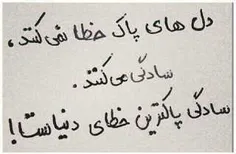 دل های پاک خطا نمی کنند،
سادگی می کنند.
سادگی پاکترین خطای دنیاست!